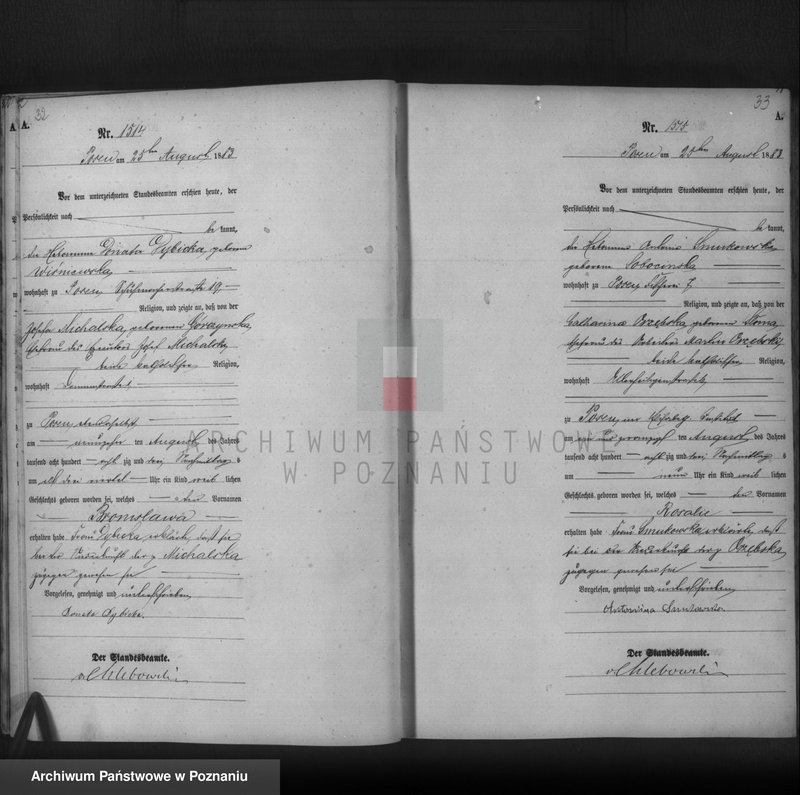 32
A.
Nr. 1514
Posen am 25ten August 1883
Vor dem unterzeichneten Standesbeamten erschien heute, der
Persönlichkeit nach
be kannt,
die Hebamme Donata Dybicka, geborene
Wiśniewska,
wohnhaft zu Posen, 19
Religion, und zeigte an, daß von der
Josefa Michalska, geborenen Gorczynska,
Ehefrau des Josef Michalski,
beide katholischer Religion,
wohnhaft
zu Posen
am ten August des Jahres
tausend acht hundert achtzig und drei Nachmittags
um Uhr ein Kind weiblichen
Geschlechts geboren worden sei, welches den Vornamen
Bronislawa
erhalten habe. Frau Dybicka erklärte, daß sie
bei der Niederkunft der p Michalska
zugegen gewesen sei
Vorgelesen, genehmigt und unterschrieben
Donata Dybicka
Der Standesbeamte.
v Chlebowski
33
A.
Nr. 1515
Posen am 25ten August 1883
Vor dem unterzeichneten Standesbeamten erschien heute, der
Persönlichkeit nach
be kannt,
die Hebamme Antonie Smukowska,
geborene Sobocinska
wohnhaft zu Posen, Fischerei 7
Religion, und zeigte an, daß von der
Catharina Orzepska, geborenen
Ehefrau des Arbeiters Martin Orzepski
beide katholischer Religion,
wohnhaft
zu Posen
am ein und zwanzigsten August des Jahres
tausend acht hundert achtzig und drei Nachmittags
um neun Uhr ein Kind weiblichen
Geschlechts geboren worden sei, welches den Vornamen
Rosalie
erhalten habe. Frau Smukowska erklärte, daß
sie bei der Niederkunft der p Orzepska
zugegen gewesen sei
Vorgelesen, genehmigt und unterschrieben
Antonina Smukowska
Der Standesbeamte.
v Chlebowski
ARCHIWUM PAŃSTWOWE
W POZNANIU
Archiwum Państwowe w Poznaniu